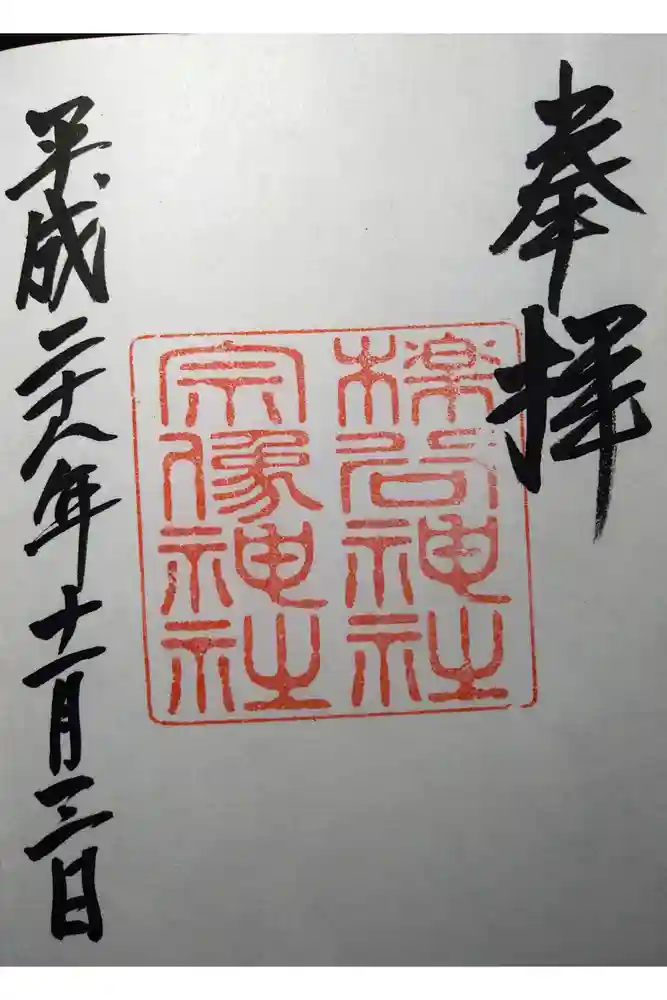 奉拝
櫟谷神社
宗像神社
平成二十八年十一月三日